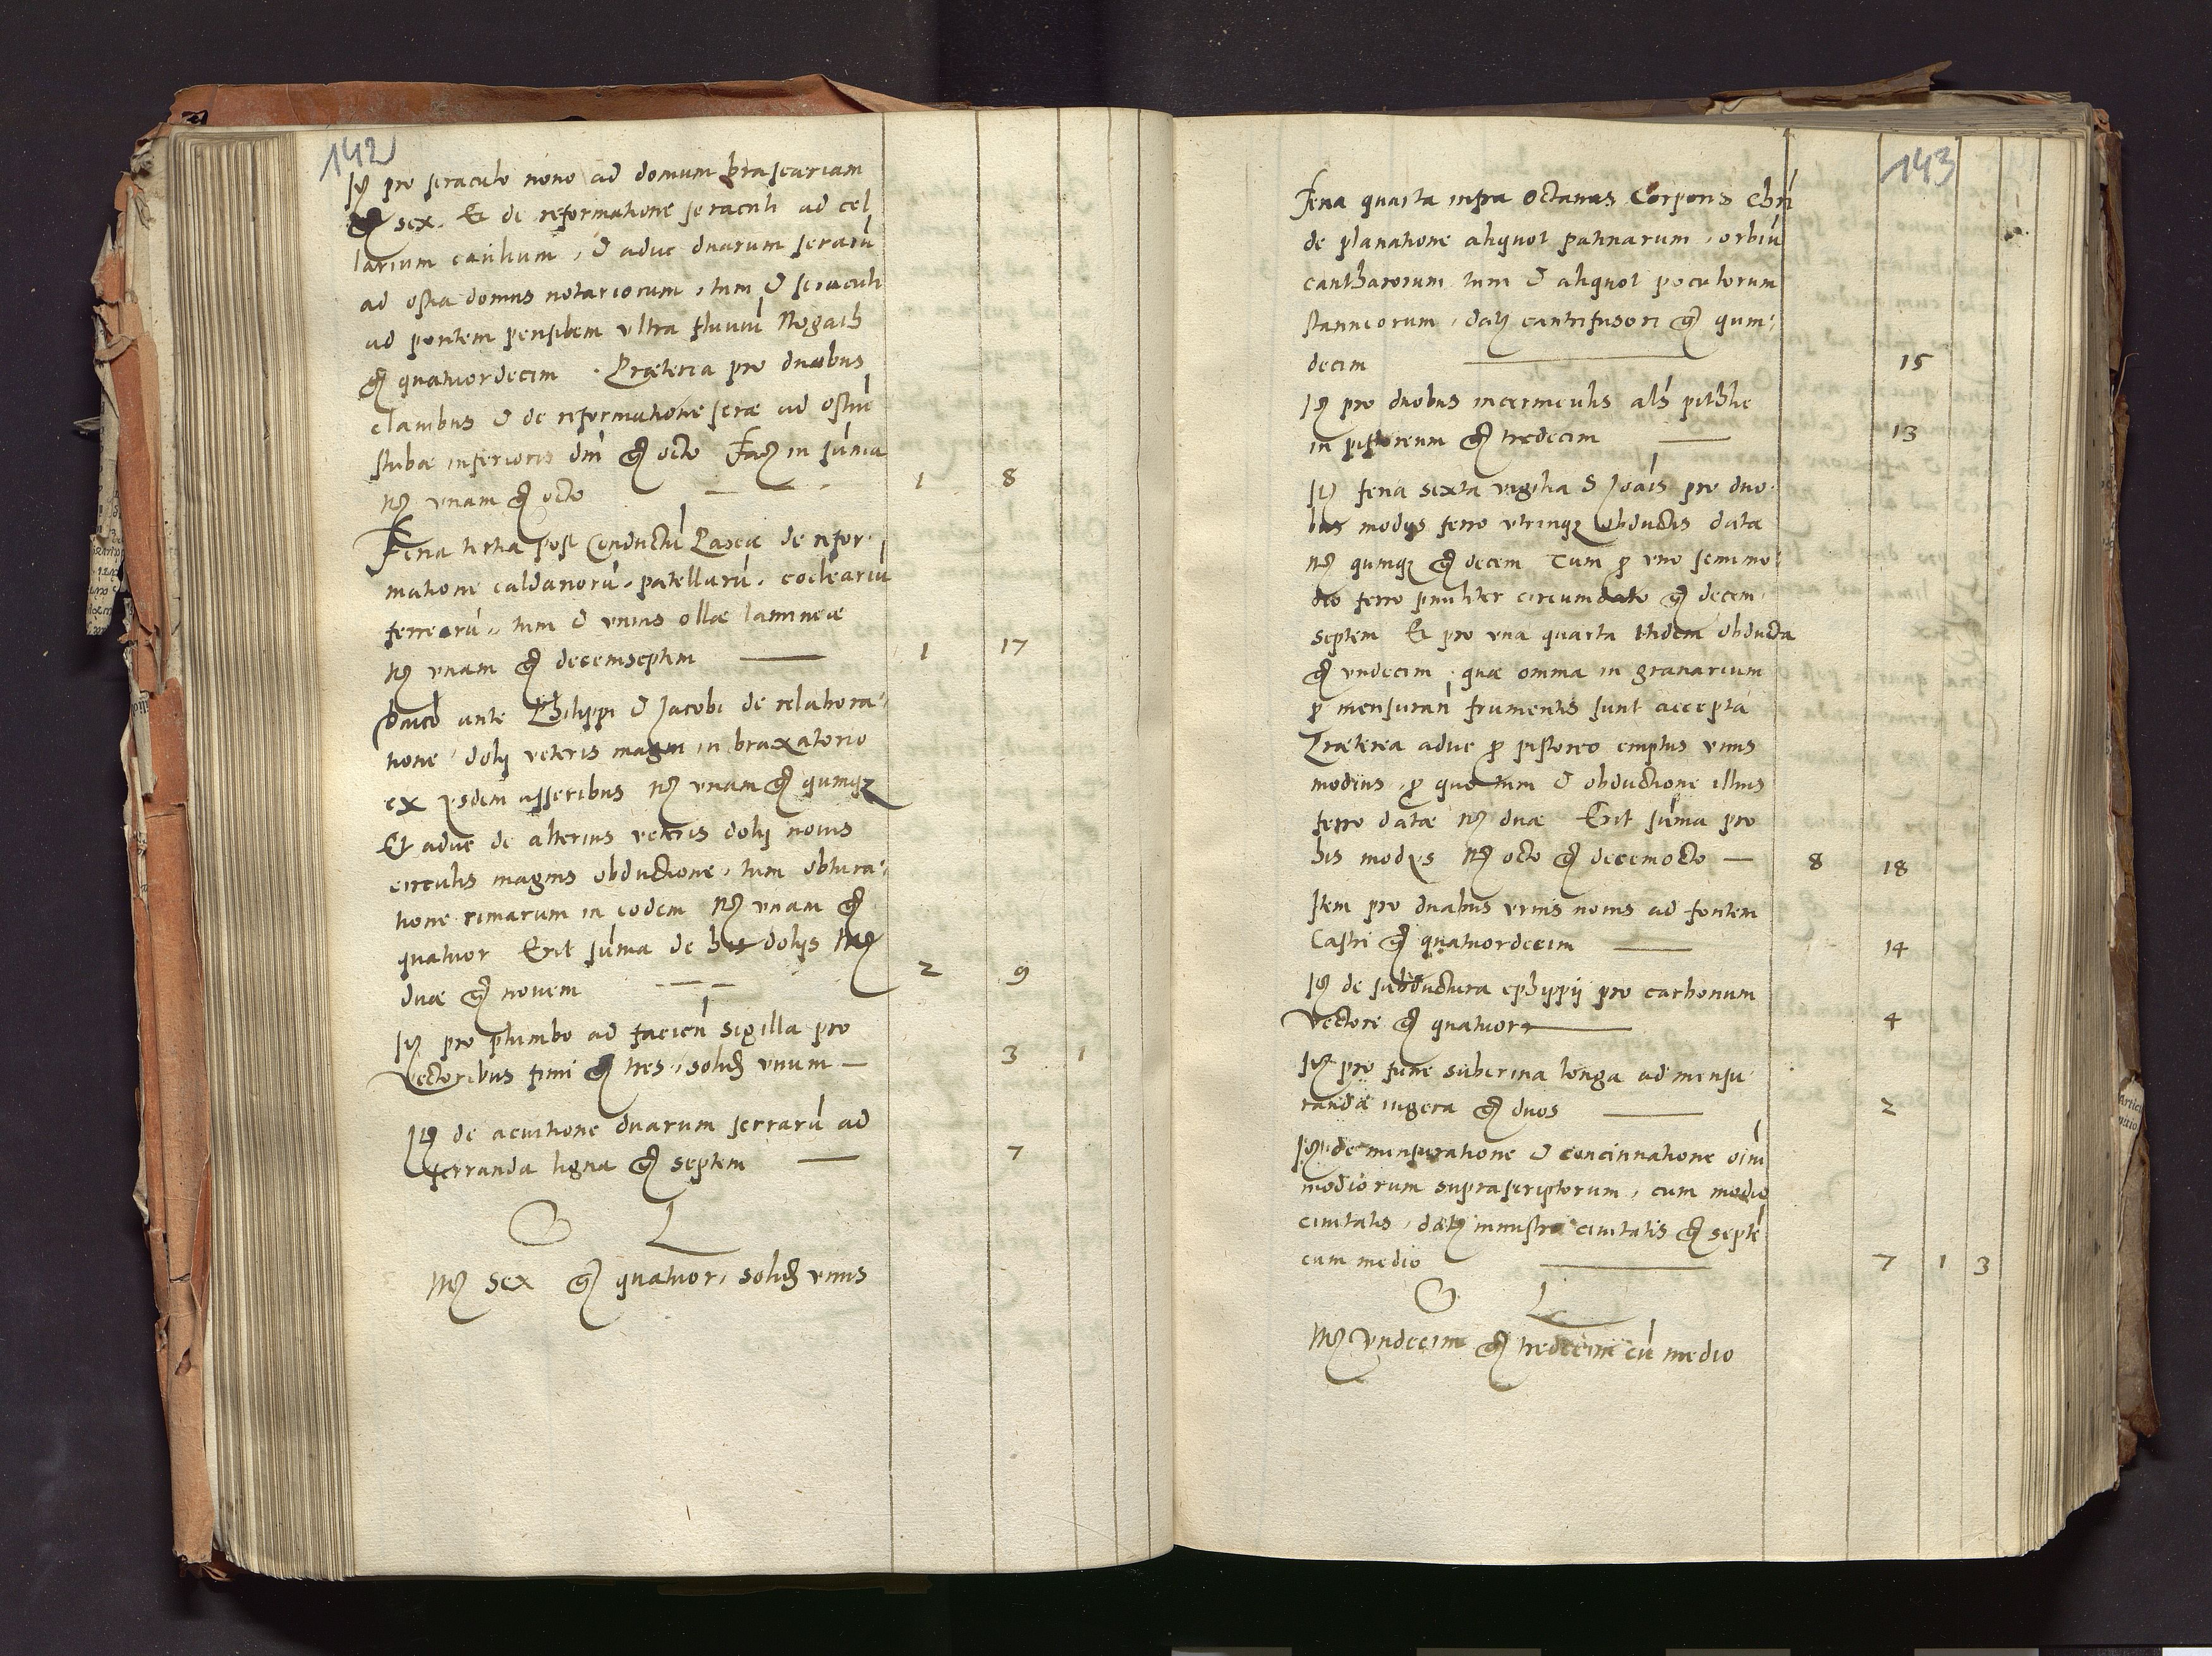 142
Itꝫ pro seraculo novo ad domum braseariam
gͬ sex. Et de reformatione seraculi ad cel
larium carilium, & aduc duarum serarū
ad ostia domus notariorum, tum & seraculi
ad pontem pensilem ultra fluviū Nogath
gͬ quatuordecim. Præterea pro duabus
clavibus & de reformatione seræ ad ostiū
stubæ inferioris dn̄i gͬ octo Facͭ in sum̄a
mͬ unam gͬ octo — 1 8
Feria tertia post Conductū Pascæ de refor-
matione caldariorū, patellarū, cocleariū
ferrearū, tum & unius ollæ lamineæ
mͬ unam gͬ decemseptem — 1 17
ante Philippi & Jacobi de relabora-
tione dolij veteris magni in braxatorio
ex ijsdem asseribus mͬ unam gͬ quinqꝫ
Et aduc de alterius veteris dolij novis
circulis magnis obductione, tum obtura-
tione rimarum in eodem mͬ unam gͬ
quatuor Erit sum̄a de his dolijs mͬ
duæ gͬ novem — 2 9
Itꝫ pro plumbo ad facien̄ sigilla pro
Vectoribus fimi gͬ tres, solid unum — 3 1
Itꝫ de acuitione duarum serrarū ad
serranda ligna gͬ septem — 7
S L
mͬ sex gͬ quatuor, solid unus
143
Feria quarta infra Octavas Corporis Chrī
de planatione aliquot patinarum, orbiū
cantharorum tum & aliquot poculorum
stanneorum, datꝫ cantrifusori gͬ quin-
decim — 15
Itꝫ pro duobus incerniculis als̄ pithlie
in pistoreum gͬ tredecim — 13
Itꝫ feria sexta vigilia S Joāis pro duo-
bus modijs ferro utrinqꝫ obductis datæ
mͬ quinqꝫ gͬ decem Tum ꝓ uno semimo-
dio ferro similiter circumdato gͬ decem
septem Et pro una quarta itidem obducta
gͬ undecim, quæ omnia in granarium
ꝓ mensuran̄ frumentis sunt accepta
Præterea aduc ꝓ pistoreo emptus unus
modius, ꝓ quo tum & obductione illius
ferro datæ mͬ duæ Erit sum̄a pro
his modijs mͬ octo gͬ decemocto — 8 18
Item pro duabus urnis novis ad fontem
Castri gͬ quatuordecim — 14
Itꝫ de subductura ephippij pro carbonum
Vectore gͬ quatuor — 4
Itꝫ pro fune suberina longa ad mensu-
randa iugera gͬ duos — 2
Itꝫ de mensuratione & concinnatione oīm
modiorum suprascriptorum, cum modio
civitatis, datꝫ ministro civitatis gͬ septē
cum medio — 7 1 3
S L
mͬ Undecim gͬ tredecim cū medio